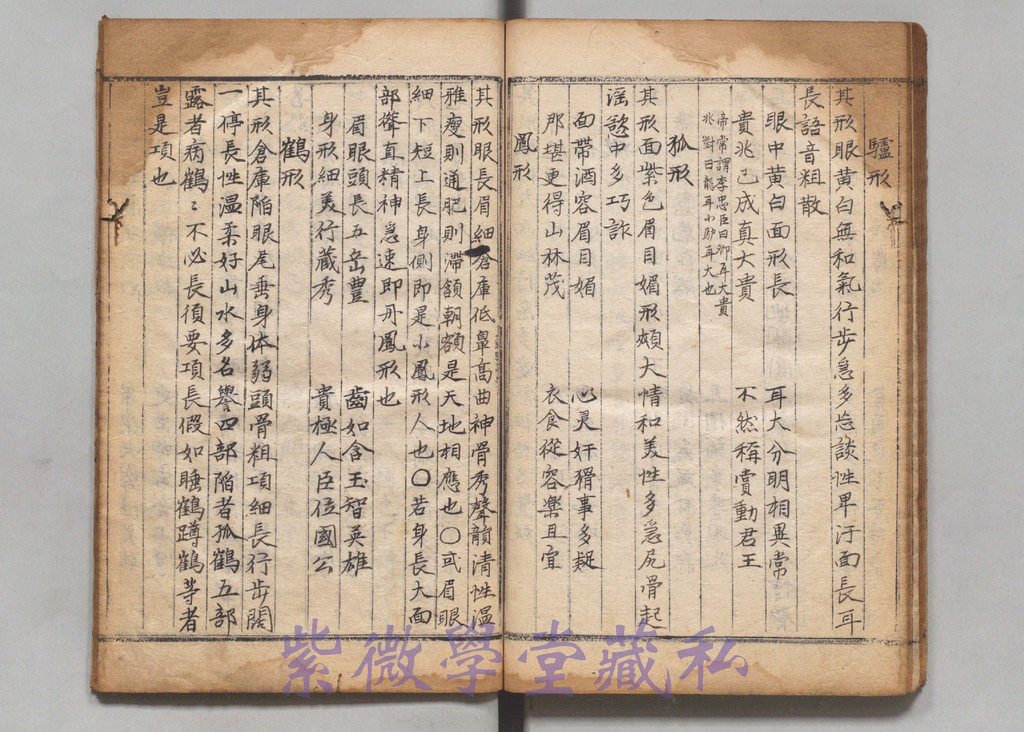 驢形
其形眼黄白無和氣行步急多忩談性卑汙面長耳
長語音粗散
眼中黄白面形長　耳大分明相異常
貴兆已成真大貴　不然稱賞動君王
帝常謂李忠臣曰卿耳大貴
兆對曰龍耳小驴耳大也
狐形
其形面紫色眉目媚形頰大情和美性多急尻骨起
謡慾中多巧詐
面帶酒容眉目媚　心灵奸猾事多疑
那堪更得山林茂　衣食從容樂且宜
鳳形
其形眼長眉細倉庫低鼻高曲神骨秀聲韻清性温
雅瘦則通肥則滯頷朝額是天地相應也〇或眉眼
細下短上長身側即是小鳳形人也〇若身長大面
部聳直精神急速即丹鳳形也
眉眼頭長五岳豊　齒如含玉智英雄
身形細美行藏秀　貴極人臣位國公
鶴形
其形倉庫陷眼尾垂身体弱頭骨粗項細長行步闊
一停長性温柔好山水多名譽四部陷者孤鶴五部
露者病鶴〻不必長須要項長假如睡鶴蹲鶴等者
豈是項也
紫微學堂藏私